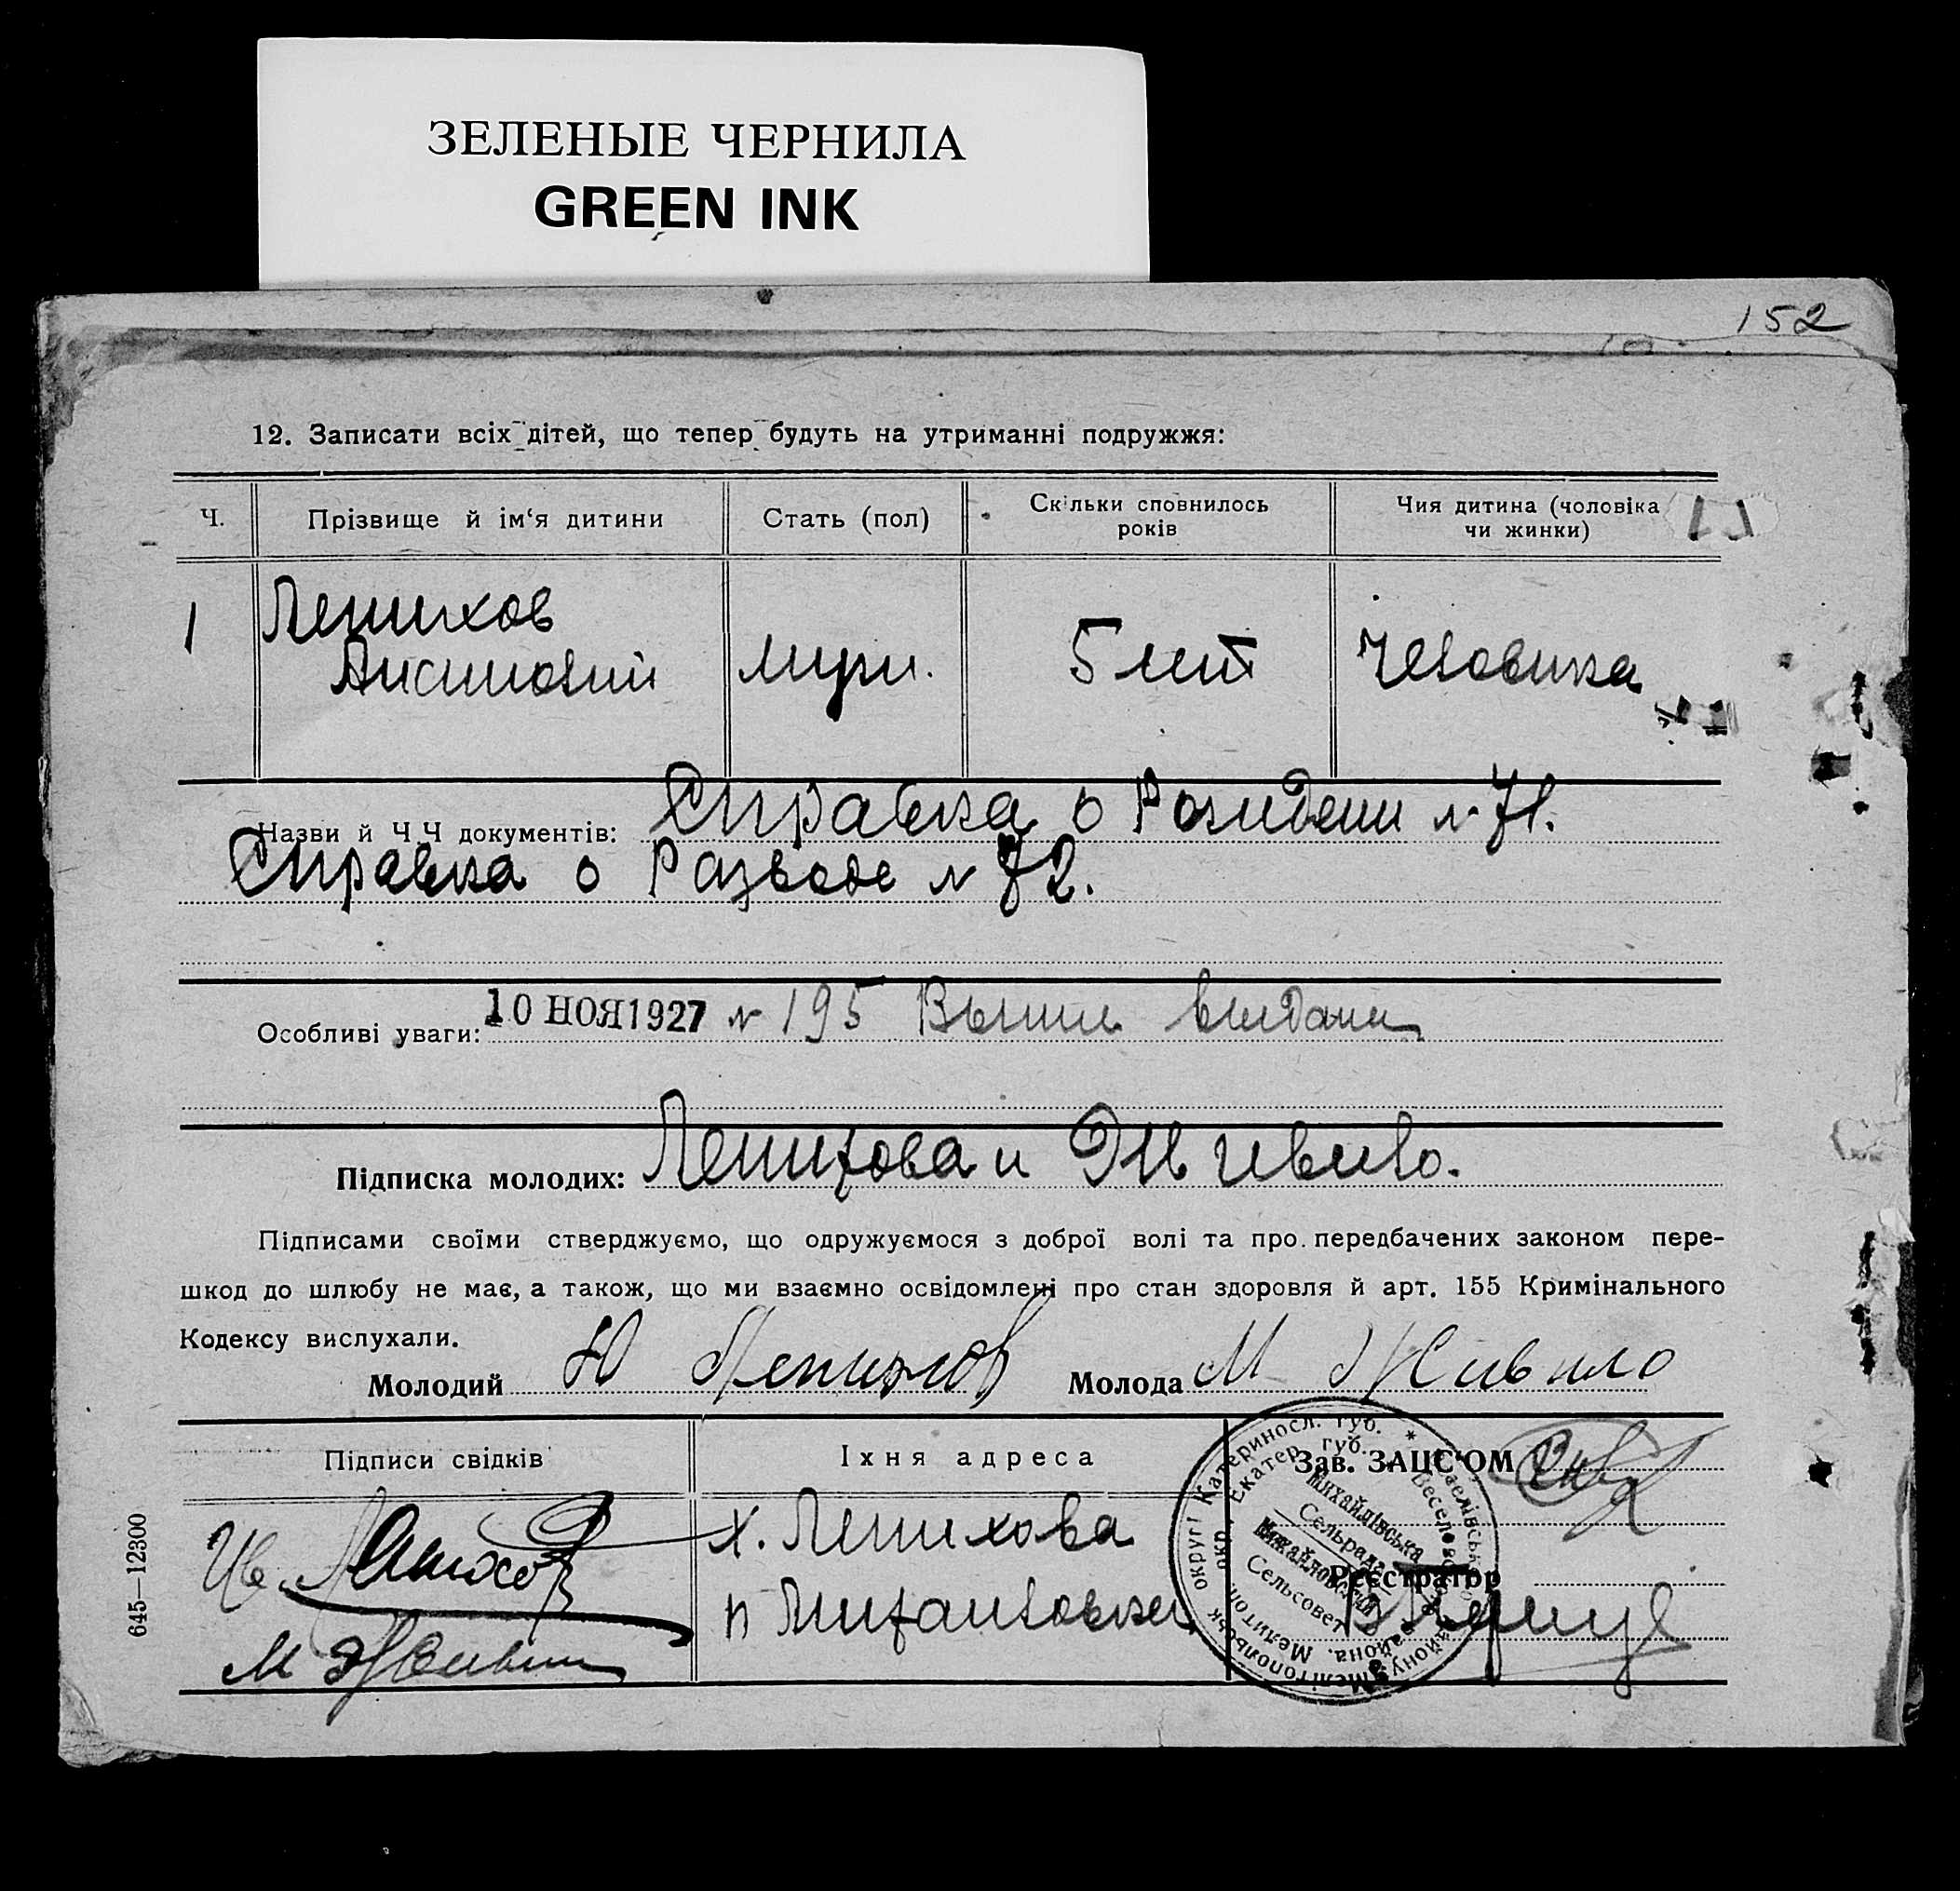 ЗЕЛЕНЫЕ ЧЕРНИЛА
GREEN INK
152
12. Записати всіх дітей, що тепер будуть на утриманні подружжя:
Ч.
Прізвище й ім‘я дитини
Стать (пол)
Скільки сповнилось
років
Чия дитина (чоловіка
чи жинки)
1
Лепихов
муж.
5 лет
Человика
Назви й Ч.Ч документів: Справка о Рождении № 71.
Справка о Разводе № 72.
Особливі уваги: 10 НОЯ 1927 № 195
Підписка молодих: Лепихова и
Підписами своїми стверджуємо, що одружуємося з доброї волі та про передбачених законом пере-
шкод до шлюбу не має, а також, що ми взаємно освідомлені про стан здоровля й арт. 155 Кримінального
Кодексу вислухали.
Молодий Ю Лепихов Молода М Живило
Підписи свідків
Їхня адреса
Зав. ЗАЦС‘ОМ
х. Лепихова
Реєстратор
п Михайловка
Михайлівська
Сельрада
Михайловский
Сельсовет
645—12300